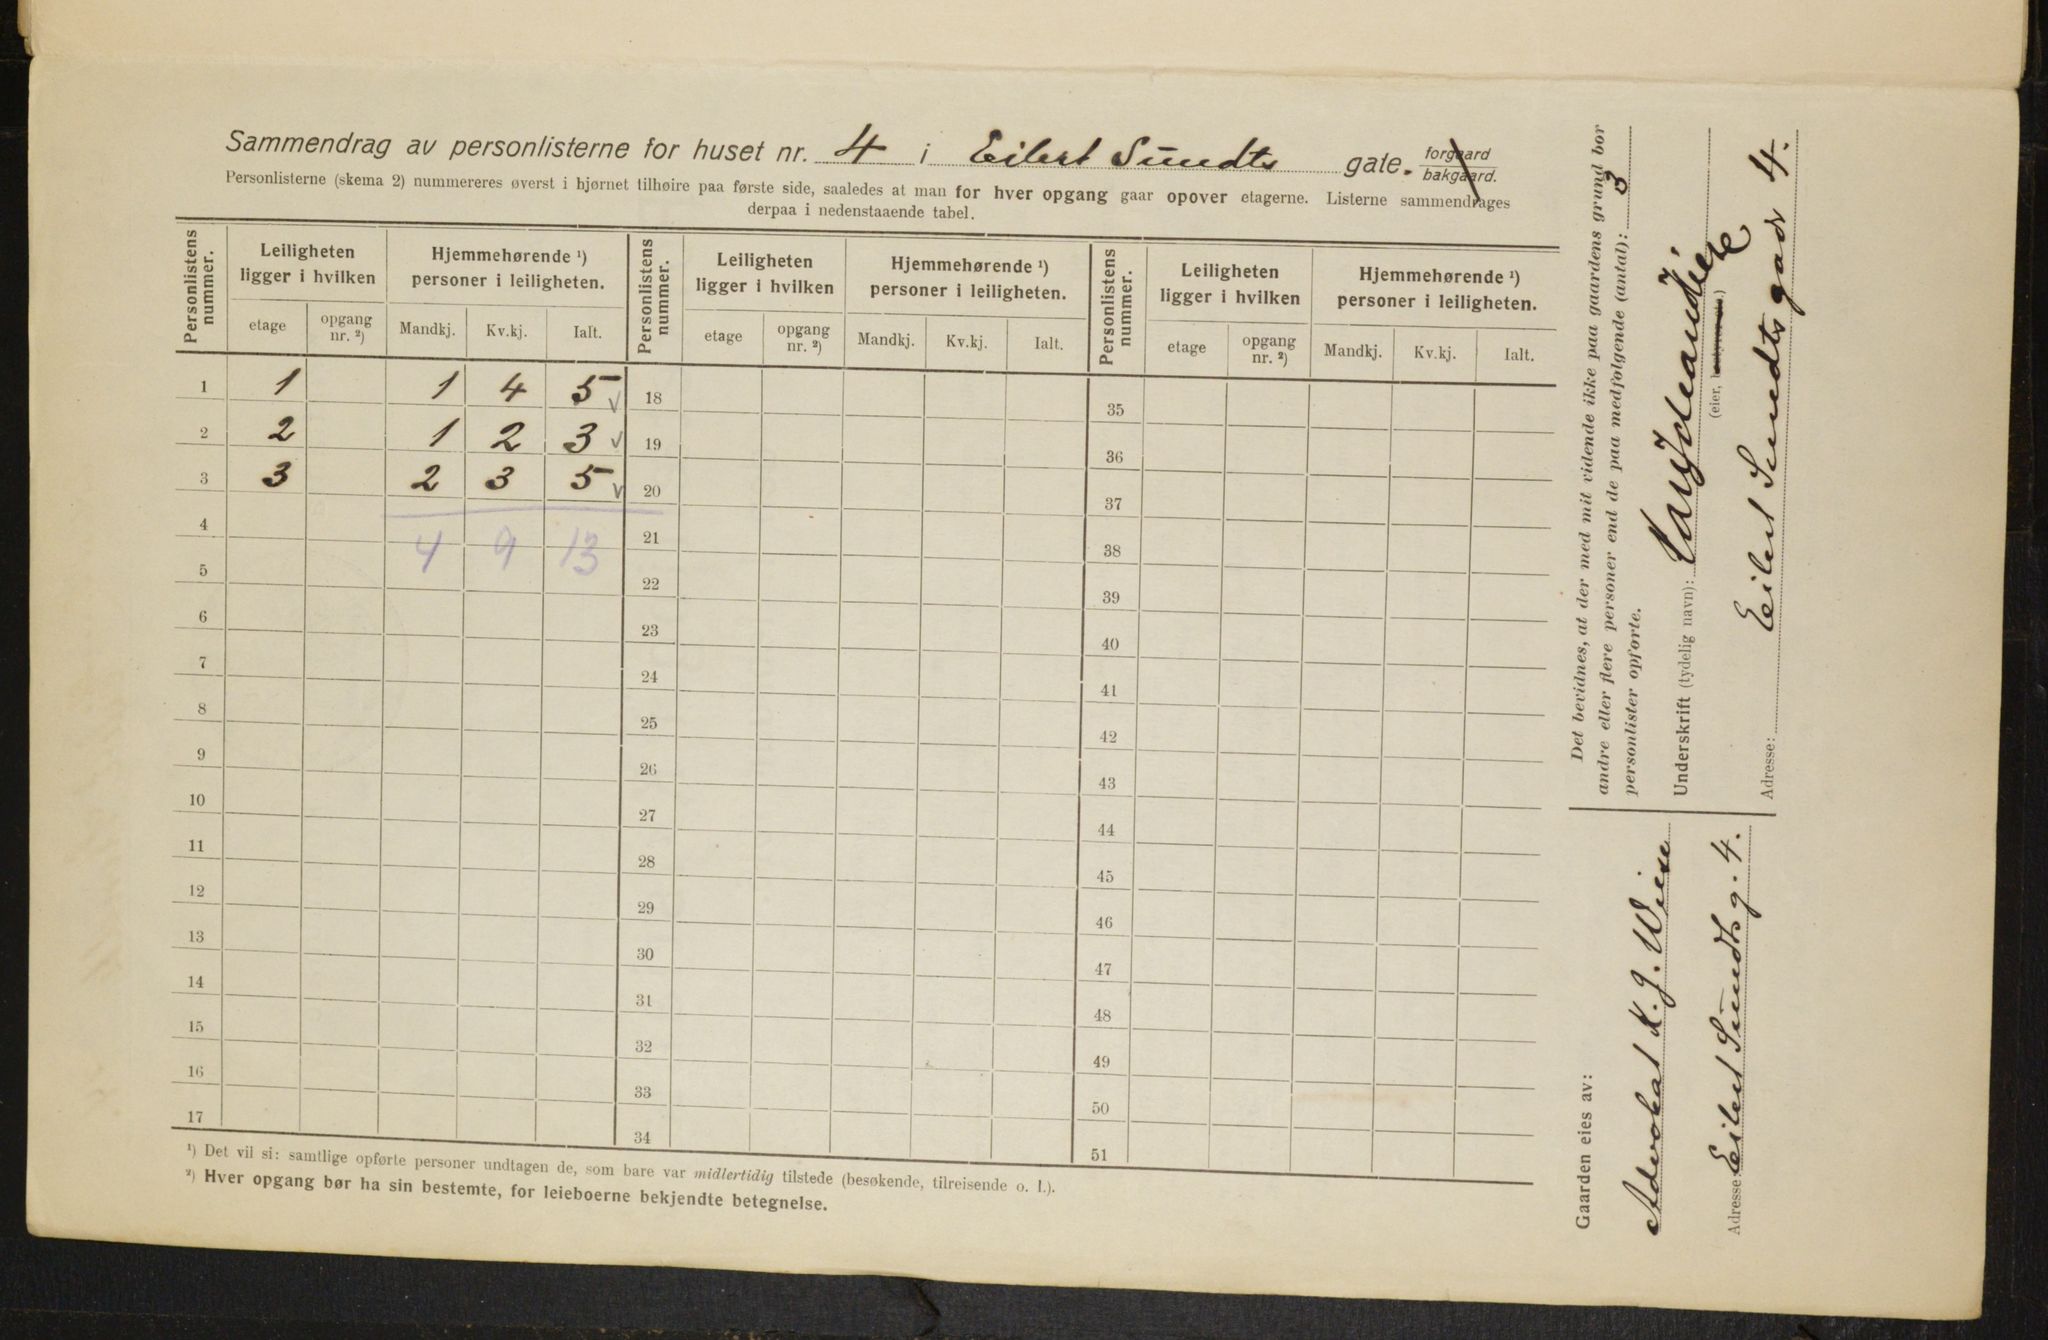 Sammendrag av personlisterne for huset nr. 4 i Eilert Sundts gate. forgaard bakgaard.
Personlisterne (skema 2) nummereres øverst i hjørnet tilhøire paa første side, saaledes at man for hver opgang gaar opover etagerne. Listerne sammendrages
derpaa i nedenstaaende tabel.
Personlistens nummer. Leiligheten ligger i hvilken Hjemmehørende ¹) personer i leiligheten. Personlistens nummer. Leiligheten ligger i hvilken Hjemmehørende ¹) personer i leiligheten. Personlistens nummer. Leiligheten ligger i hvilken Hjemmehørende ¹) personer i leiligheten.
etage opgang nr. ²) Mandkj. Kv.kj. Ialt. etage opgang nr. ²) Mandkj. Kv.kj. Ialt. etage opgang nr. ²) Mandkj. Kv.kj. Ialt.
1 1 1 4 5 18 35
2 2 1 2 3 19 36
3 3 2 3 5 20 37
4 21 38
4 9 13
5 22 39
6 23 40
7 24 41
8 25 42
9 26 43
10 27 44
11 28 45
12 29 46
13 30 47
14 31 48
15 32 49
16 33 50
17 34 51
¹) Det vil si: samtlige opførte personer undtagen de, som bare var midlertidig tilstede (besøkende, tilreisende o. l.).
²) Hver opgang bør ha sin bestemte, for leieboerne bekjendte betegnelse.
Det bevidnes, at der med mit vidende ikke paa gaardens grund bor
andre eller flere personer end de paa medfølgende (antal): 3
personlister opførte.
Underskrift (tydelig navn):
(eier,
Adresse: Eilert Sundts gade 4.
Gaarden eies av:
Advokat K. J. Wiese
Adresse Eilert Sundts g. 4.